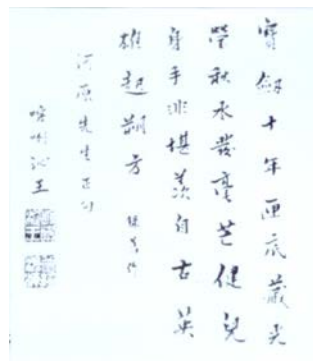 寶劍十年匣底藏光
瑩秋水發豪芒健兒
身手非堪羨自古英
雄起朔方
河原先生正句
喀喇沁王